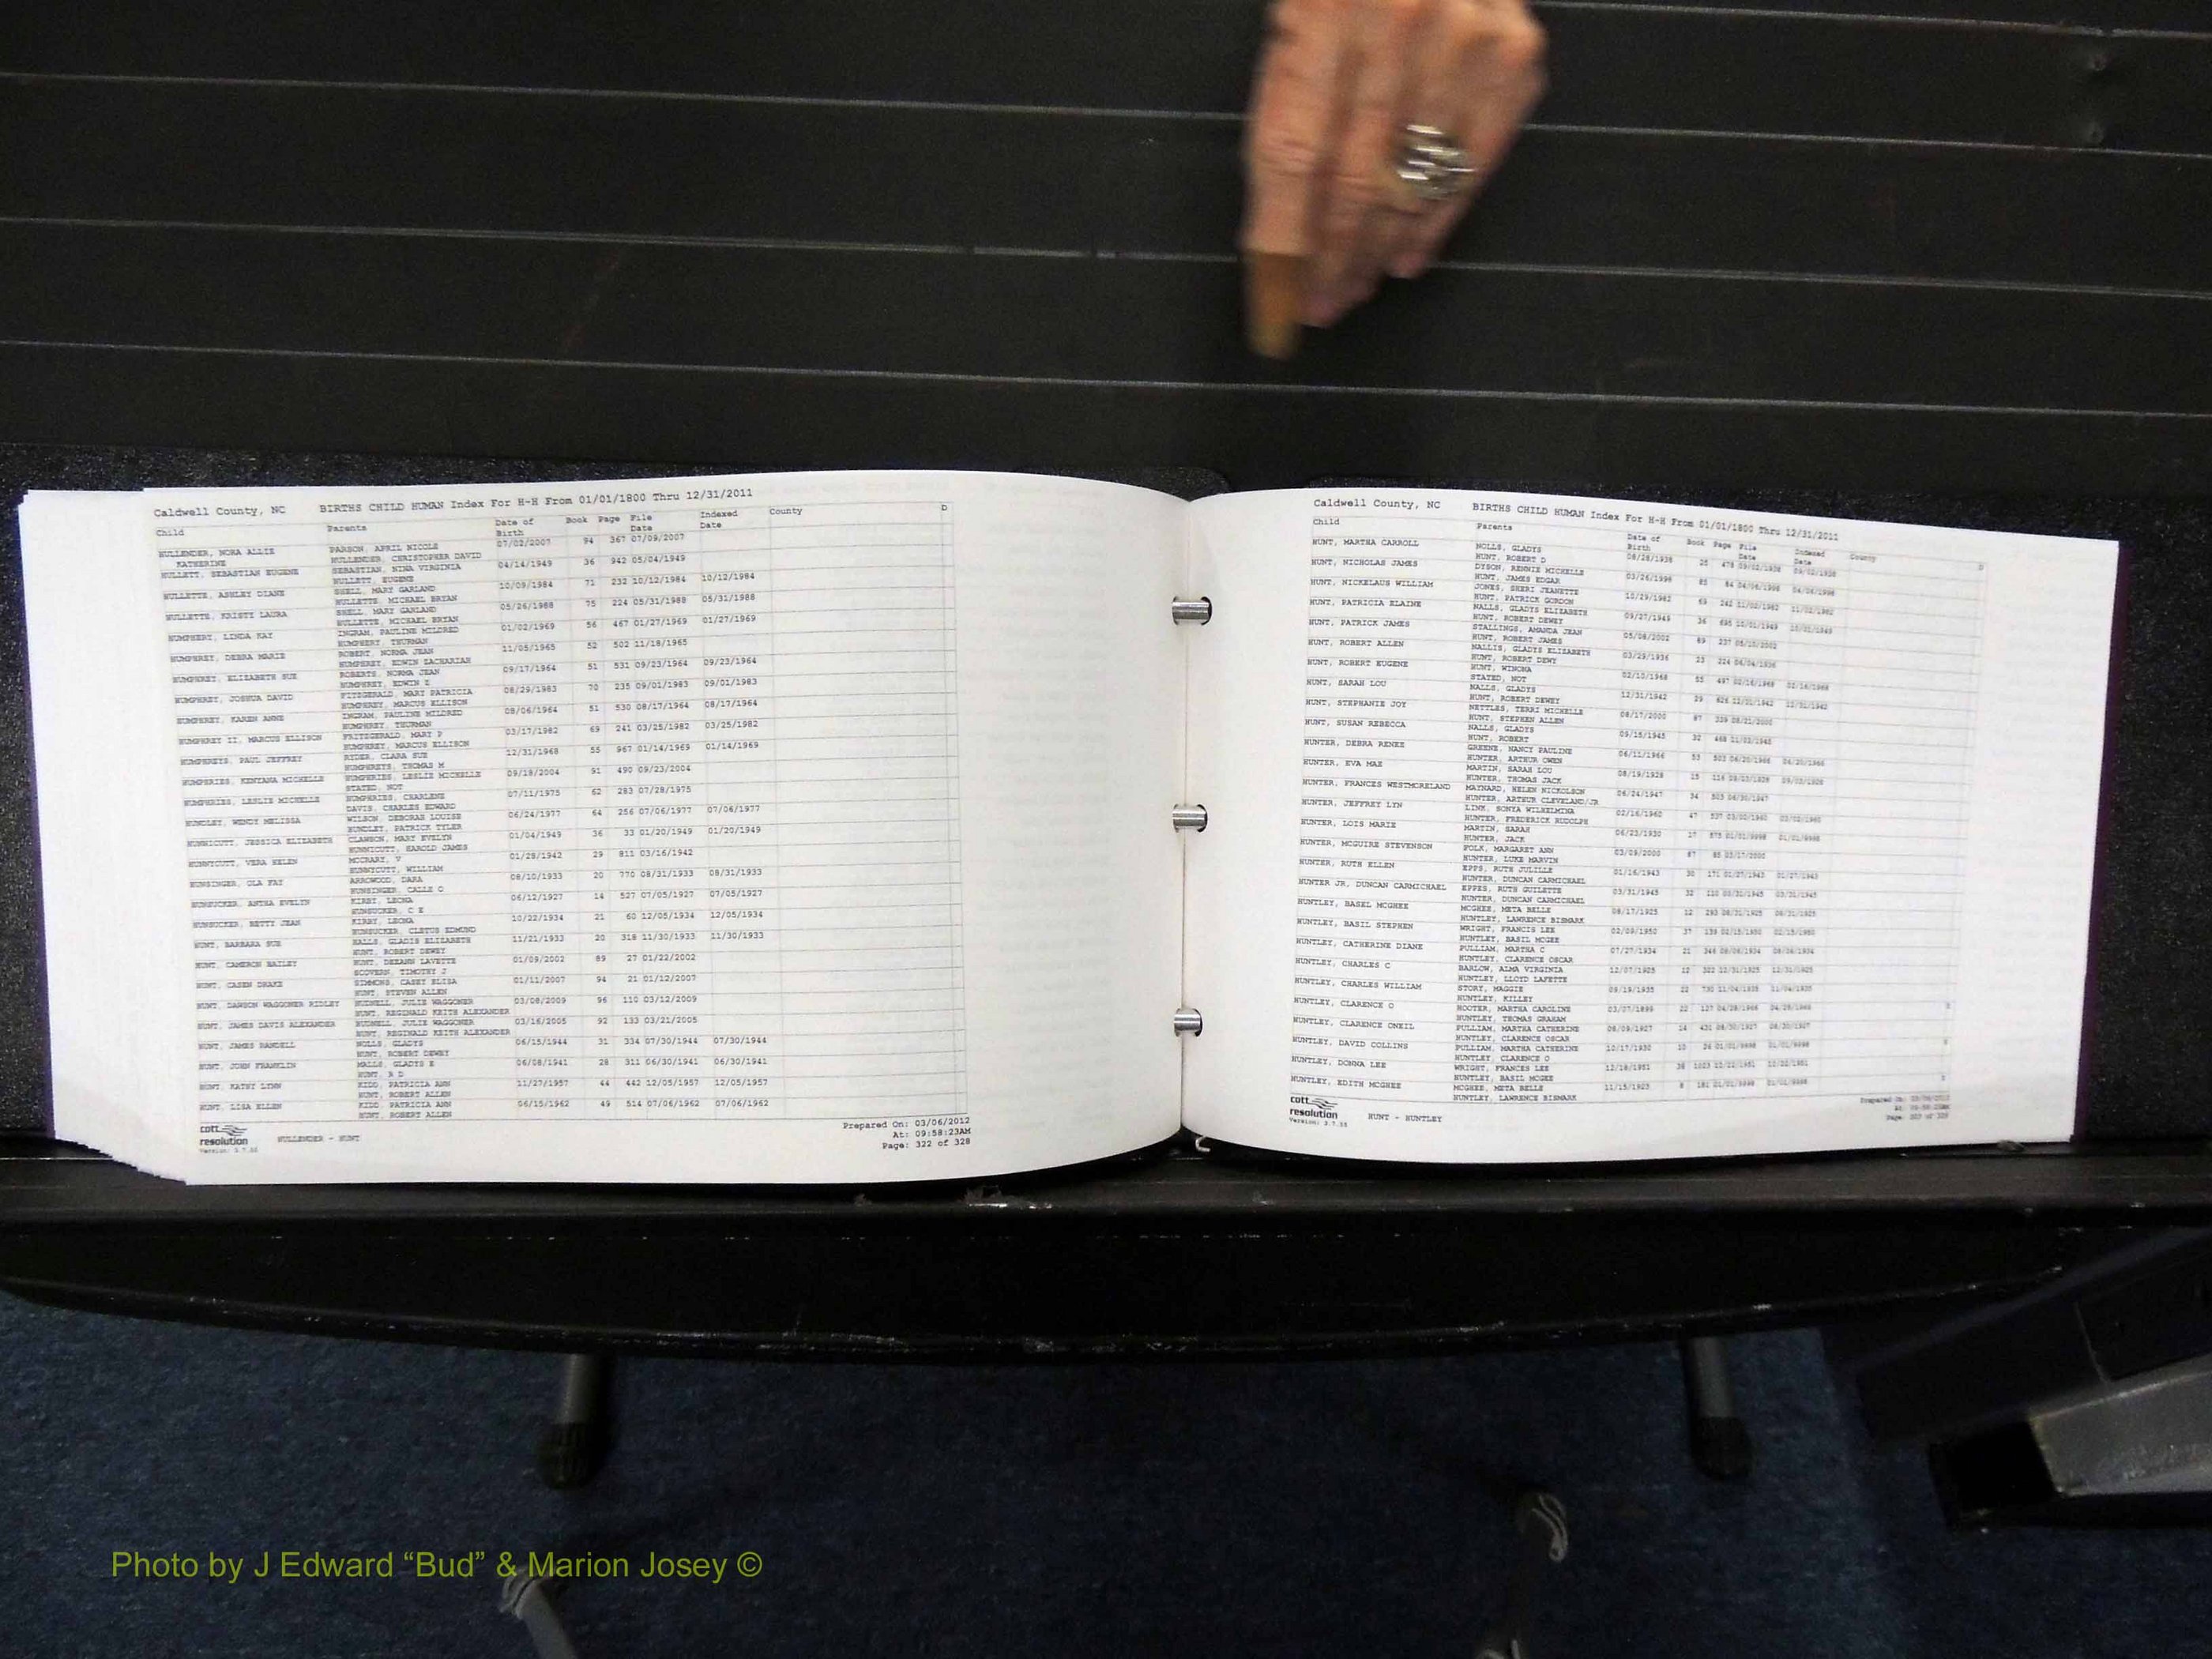 Caldwell County, NC BIRTHS CHILD HUMAN Index For H-H From 01/01/1800 Thru 12/31/2011
Child Parents Date of Birth Book Page File Date Indexed Date County D
HULLENDER, NORA ALLIE KATHERINE PARSON, APRIL NICOLE 07/02/2007 94 367 07/09/2007
HULLENDER, CHRISTOPHER DAVID
HULLETT, SEBASTIAN EUGENE SEBASTIAN, NINA VIRGINIA 04/14/1949 36 942 05/04/1949
HULLETT, EUGENE
HULLETTE, ASHLEY DIANE SHELL, MARY GARLAND 10/09/1984 71 232 10/12/1984 10/12/1984
HULLETTE, MICHAEL BRYAN
HULLETTE, KRISTY LAURA SHELL, MARY GARLAND 05/26/1988 75 224 05/31/1988 05/31/1988
HULLETTE, MICHAEL BRYAN
HUMPHERY, LINDA KAY INGRAM, PAULINE MILDRED 01/02/1969 56 467 01/27/1969 01/27/1969
HUMPHERY, THURMAN
HUMPHREY, DEBRA MARIE ROBERT, NORMA JEAN 11/05/1965 52 502 11/18/1965
HUMPHREY, EDWIN ZACHARIAH
HUMPHREY, ELIZABETH SUE ROBERTS, NORMA JEAN 09/17/1964 51 531 09/23/1964 09/23/1964
HUMPHREY, EDWIN Z
HUMPHREY, JOSHUA DAVID FITZGERALD, MARY PATRICIA 08/29/1983 70 235 09/01/1983 09/01/1983
HUMPHREY, MARCUS ELLISON
HUMPHREY, KAREN ANNE INGRAM, PAULINE MILDRED 08/06/1964 51 530 08/17/1964 08/17/1964
HUMPHREY, THURMAN
HUMPHREY II, MARCUS ELLISON FRITZGERALD, MARY P 03/17/1982 69 241 03/25/1982 03/25/1982
HUMPHREY, MARCUS ELLISON
HUMPHREYS, PAUL JEFFREY RYDER, CLARA SUE 12/31/1968 55 967 01/14/1969 01/14/1969
HUMPHREYS, THOMAS M
HUMPHRIES, KENYANA MICHELLE HUMPHRIES, LESLIE MICHELLE 09/18/2004 91 490 09/23/2004
STATED, NOT
HUMPHRIES, LESLIE MICHELLE HUMPHRIES, CHARLENE 07/11/1975 62 283 07/28/1975
DAVIS, CHARLES EDWARD
HUNDLEY, WENDY MELISSA WILSON, DEBORAH LOUISE 06/24/1977 64 256 07/06/1977 07/06/1977
HUNDLEY, PATRICK TYLER
HUNNICUTT, JESSICA ELIZABETH CLAWSON, MARY EVELYN 01/04/1949 36 33 01/20/1949 01/20/1949
HUNNICUTT, HAROLD JAMES
HUNNYCUTT, VERA HELEN MCCRARY, V 01/28/1942 29 811 03/16/1942
HUNNYCUTT, WILLIAM
HUNSINGER, OLA FAY ARROWOOD, DARA 08/10/1933 20 770 08/31/1933 08/31/1933
HUNSINGER, CALLE O
HUNSUCKER, ANTHA EVELYN KIRBY, LEONA 06/12/1927 14 527 07/05/1927 07/05/1927
HUNSUCKER, C E
HUNSUCKER, BETTY JEAN KIRBY, LEONA 10/22/1934 21 60 12/05/1934 12/05/1934
HUNSUCKER, CLETUS EDMUND
HUNT, BARBARA SUE HALLS, GLADIS ELIZABETH 11/21/1933 20 318 11/30/1933 11/30/1933
HUNT, ROBERT DEWEY
HUNT, CAMERON BAILEY HUNT, DEEANN LAVETTE 01/09/2002 89 27 01/22/2002
SCOVERN, TIMOTHY J
HUNT, CASEN DRAKE SIMMONS, CASEY ELISA 01/11/2007 94 21 01/12/2007
HUNT, STEVEN ALLEN
HUNT, DAWSON WAGGONER RIDLEY HUDNELL, JULIE WAGGONER 03/08/2009 96 110 03/12/2009
HUNT, REGINALD KEITH ALEXANDER
HUNT, JAMES DAVIS ALEXANDER HUDNELL, JULIE WAGGONER 03/16/2005 92 133 03/21/2005
HUNT, REGINALD KEITH ALEXANDER
HUNT, JAMES RANDELL NOLLS, GLADYS 06/15/1944 31 334 07/30/1944 07/30/1944
HUNT, ROBERT DEWEY
HUNT, JOHN FRANKLIN MALLS, GLADYS E 06/08/1941 28 311 06/30/1941 06/30/1941
HUNT, R D
HUNT, KATHY LYNN KIDD, PATRICIA ANN 11/27/1957 44 442 12/05/1957 12/05/1957
HUNT, ROBERT ALLEN
HUNT, LISA ELLEN KIDD, PATRICIA ANN 06/15/1962 49 514 07/06/1962 07/06/1962
HUNT, ROBERT ALLEN
cott
resolution
Version: 3.7.55
HULLENDER - HUNT
Prepared On: 03/06/2012
At: 09:58:23AM
Page: 322 of 328
Caldwell County, NC BIRTHS CHILD HUMAN Index For H-H From 01/01/1800 Thru 12/31/2011
Child Parents Date of Birth Book Page File Date Indexed Date County D
HUNT, MARTHA CARROLL NOLLS, GLADYS
HUNT, ROBERT D
HUNT, NICHOLAS JAMES DYSON, RENNIE MICHELLE 03/26/1998
HUNT, JAMES EDGAR
HUNT, NICKELAUS WILLIAM JONES, SHERI JEANETTE 10/29/1982 69 242 11/02/1982 11/02/1982
HUNT, PATRICK GORDON
HUNT, PATRICIA ELAINE NALLS, GLADYS ELIZABETH 09/27/1949 36 695
HUNT, ROBERT DEWEY
HUNT, PATRICK JAMES STALLINGS, AMANDA JEAN 05/08/2002 89 237
HUNT, ROBERT JAMES
HUNT, ROBERT ALLEN MALLIS, GLADYS ELIZABETH 03/29/1936 224
HUNT, ROBERT DEWY
HUNT, ROBERT EUGENE HUNT, WINONA 02/10/1968 55 497 02/16/1968 02/16/1968
STATED, NOT
HUNT, SARAH LOU NALLS, GLADYS 12/31/1942 29 626 12/31/1942 12/31/1942
HUNT, ROBERT DEWEY
HUNT, STEPHANIE JOY NETTLES, TERRI MICHELLE 08/17/2000 87 339 08/21/2000
HUNT, STEPHEN ALLEN
HUNT, SUSAN REBECCA NALLS, GLADYS 09/15/1945 32 468
HUNT, ROBERT
HUNTER, DEBRA RENEE GREENE, NANCY PAULINE 06/11/1966 53 503
HUNTER, ARTHUR OWEN
HUNTER, EVA MAE MARTIN, SARAH LOU 08/19/1928 15
HUNTER, THOMAS JACK
HUNTER, FRANCES WESTMORELAND MAYNARD, HELEN NICKOLSON 06/24/1947 34 503 06/30/1947
HUNTER, ARTHUR CLEVELAND/JR
HUNTER, JEFFREY LYN LINK, SONYA WILHELMINA 02/16/1960 47
HUNTER, FREDERICK RUDOLPH
HUNTER, LOIS MARIE MARTIN, SARAH 06/23/1930 17 575 01/01/9998 01/01/9998
HUNTER, JACK
HUNTER, MCGUIRE STEVENSON POLK, MARGARET ANN 03/09/2000 87 85 03/17/2000
HUNTER, LUKE MARVIN
HUNTER, RUTH ELLEN EPPS, RUTH JULILLE 01/16/1943 30 171 01/27/1943 01/27/1943
HUNTER, DUNCAN CARMICHAEL
HUNTER JR, DUNCAN CARMICHAEL EPPES, RUTH GUILETTE 03/31/1945 32 110 03/31/1945 03/31/1945
HUNTER, DUNCAN CARMICHAEL
HUNTLEY, BASEL MCGHEE MCGHEE, META BELLE 08/17/1925 12 293 08/31/1925 08/31/1925
HUNTLEY, LAWRENCE BISMARK
HUNTLEY, BASIL STEPHEN WRIGHT, FRANCIS LEE 02/09/1950 37 139 02/15/1950 02/15/1950
HUNTLEY, BASIL MCGEE
HUNTLEY, CATHERINE DIANE PULLIAM, MARTHA C 07/27/1934 21
HUNTLEY, CLARENCE OSCAR
HUNTLEY, CHARLES C BARLOW, ALMA VIRGINIA 12/07/1925 12 322 12/31/1925 12/31/1925
HUNTLEY, LLOYD LAFETTE
HUNTLEY, CHARLES WILLIAM STORY, MAGGIE 09/19/1935 22 730 11/04/1935 11/04/1935
HUNTLEY, KILLEY
HUNTLEY, CLARENCE O HOOTER, MARTHA CAROLINE 03/27/1899 22 127
HUNTLEY, THOMAS GRAHAM
HUNTLEY, CLARENCE ONEIL PULLIAM, MARTHA CATHERINE 08/09/1927 14 431 08/30/1927 08/30/1927
HUNTLEY, CLARENCE OSCAR
HUNTLEY, DAVID COLLINS PULLIAM, MARTHA CATHERINE 10/17/1930 01/01/9998 01/01/9998
HUNTLEY, CLARENCE O
HUNTLEY, DONNA LEE WRIGHT, FRANCES LEE 12/18/1951 38 1023 12/22/1951 12/22/1951
HUNTLEY, BASIL MCGEE
HUNTLEY, EDITH MCGHEE MCGHEE, META BELLE 11/15/1923 181 01/01/9998 01/01/9998
HUNTLEY, LAWRENCE BISMARK
cott
resolution
Version: 3.7.55
HUNT - HUNTLEY
Photo by J Edward “Bud” & Marion Josey ©